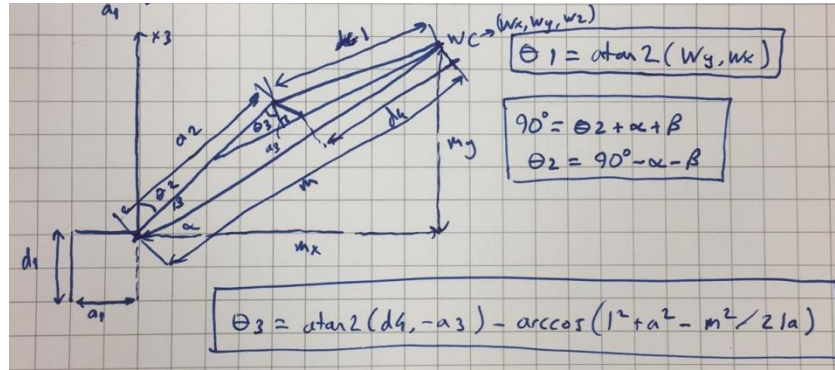 a1
x3
WC → (Wx, Wy, Wz)
θ1 = atan2(Wy, Wx)
a2
θ3
a3
d4
my
90° = θ2 + α + β
θ2 = 90° - α - β
θ2
β
m
α
mx
d1
a1
θ3 = atan2(d4, -a3) - arccos(l² + a² - m² / 2la)